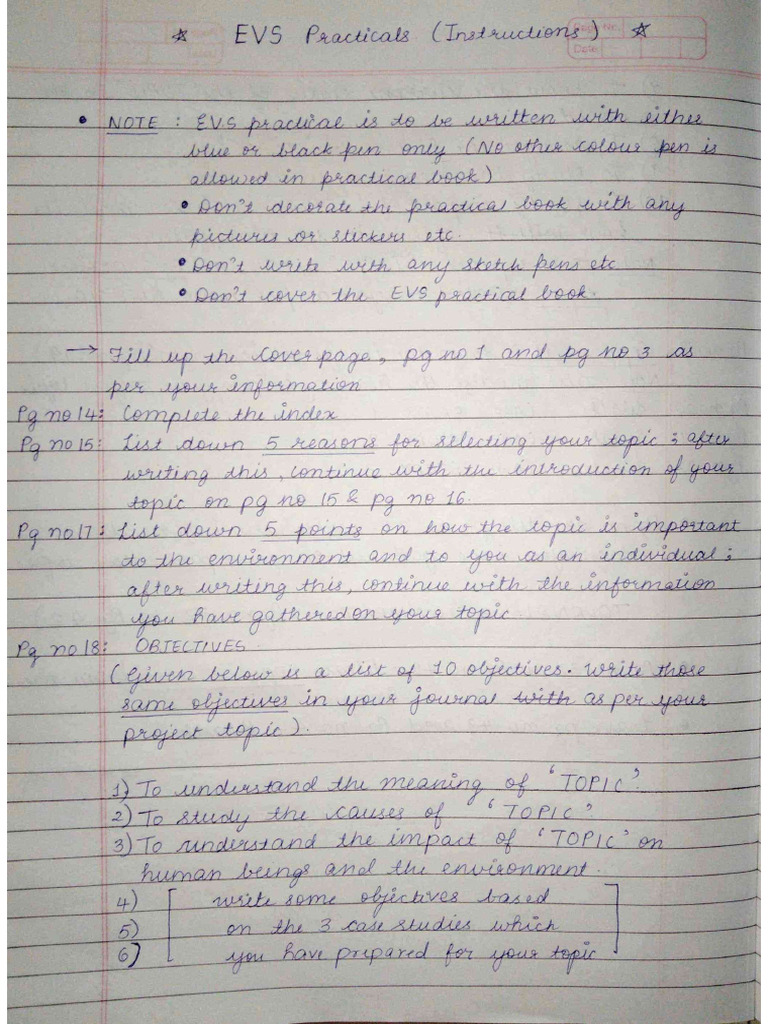 ☆ EVS Practicals (Instructions) ☆
Page No.
Date
• NOTE : EVS practical is to be written with either
blue or black pen only (No other colour pen is
allowed in practical book)
• Don't decorate the practical book with any
pictures or stickers etc.
• Don't write with any sketch pens etc
• Don't cover the EVS practical book.
→ Fill up the cover page, pg no 1 and pg no 3 as
per your information
Pg no 14: Complete the index
Pg no 15: List down 5 reasons for selecting your topic ; after
writing this, continue with the introduction of your
topic on pg no 15 & pg no 16.
Pg no 17: List down 5 points on how the topic is important
to the environment and to you as an individual ;
after writing this, continue with the information
you have gathered on your topic.
Pg no 18: OBJECTIVES.
(Given below is a list of 10 objectives. Write those
same objectives in your journal with as per your
project topic).
1) To understand the meaning of 'TOPIC'.
2) To study the causes of 'TOPIC'
3) To understand the impact of 'TOPIC' on
human beings and the environment.
4) [ write some objectives based ]
5) on the 3 case studies which
6) you have prepared for your topic